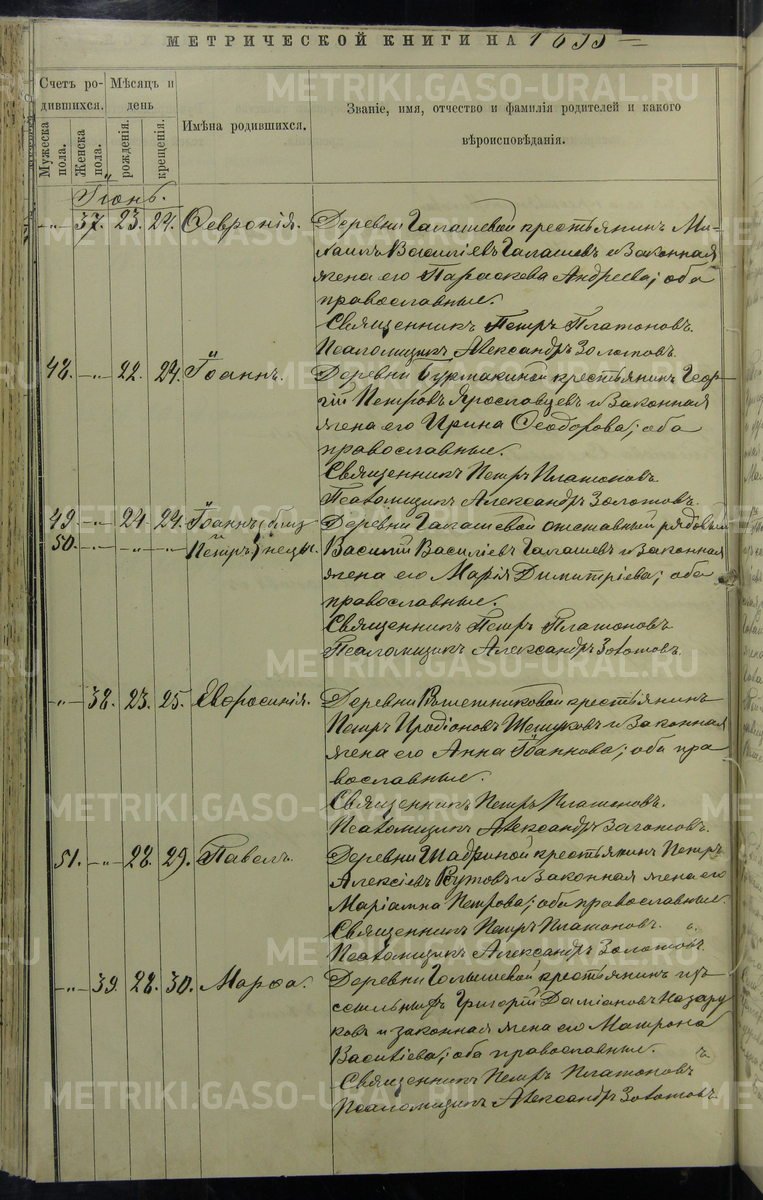 МЕТРИЧЕСКОЙ КНИГИ НА
Счетъ ро-
дившихся.
Мѣсяцъ и
день
Имѣна родившихся.
Званіе, имя, отчество и фамилія родителей и какого
вѣроисповѣданія.
Мужеска
пола.
Женска
пола.
рожденія.
крещенія.
Іюнь.
-"- 37. 23. 24. Ѳевронія. Деревни Галашевой крестьянинъ Ми-
хаилъ Василіевъ Галашевъ и законная
жена его Параскева Андреева; оба
православные.
Священникъ Петръ Платоновъ.
Псаломщикъ Александръ Золотовъ.
48. -"- 22. 24. Іоаннъ. Деревни Бурмакиной крестьянинъ Геор-
гій Петровъ Ярославцевъ и законная
жена его Ирина Ѳеодорова; оба
православные.
Священникъ Петръ Платоновъ.
Псаломщикъ Александръ Золотовъ.
49 -"- 24 24. Іоаннъ близ Деревни Галашевой отставный рядовый
50. -"- -"- -"- Петръ нецы. Василій Василіевъ Галашевъ и законная
жена его Марія Димитріева; оба
православные.
Священникъ Петръ Платоновъ
Псаломщикъ Александръ Золотовъ.
-"- 38. 23. 25. Евфросинія. Деревни крестьянинъ
Петръ Иродіоновъ и законная
жена его Анна Іоаннова; оба пра
вославные.
Священникъ Петръ Платоновъ.
Псаломщикъ Александръ Золотовъ.
51. -"- 28. 29. Павелъ. Деревни Шадриной крестьянинъ Петръ
Алексіевъ и законная жена его
Маріамна Петрова; оба православные.
Священникъ Петръ Платоновъ.
Псаломщикъ Александръ Золотовъ.
-"- 39. 28. 30. Марѳа. Деревни Голышевой крестьянинъ изъ
ссыльныхъ Григорій Даміановъ Назару
ковъ и законная жена его Матрона
Василіева; оба православные.
Священникъ Петръ Платоновъ
Псаломщикъ Александръ Золотовъ.
METRIKI.GASO-URAL.RU